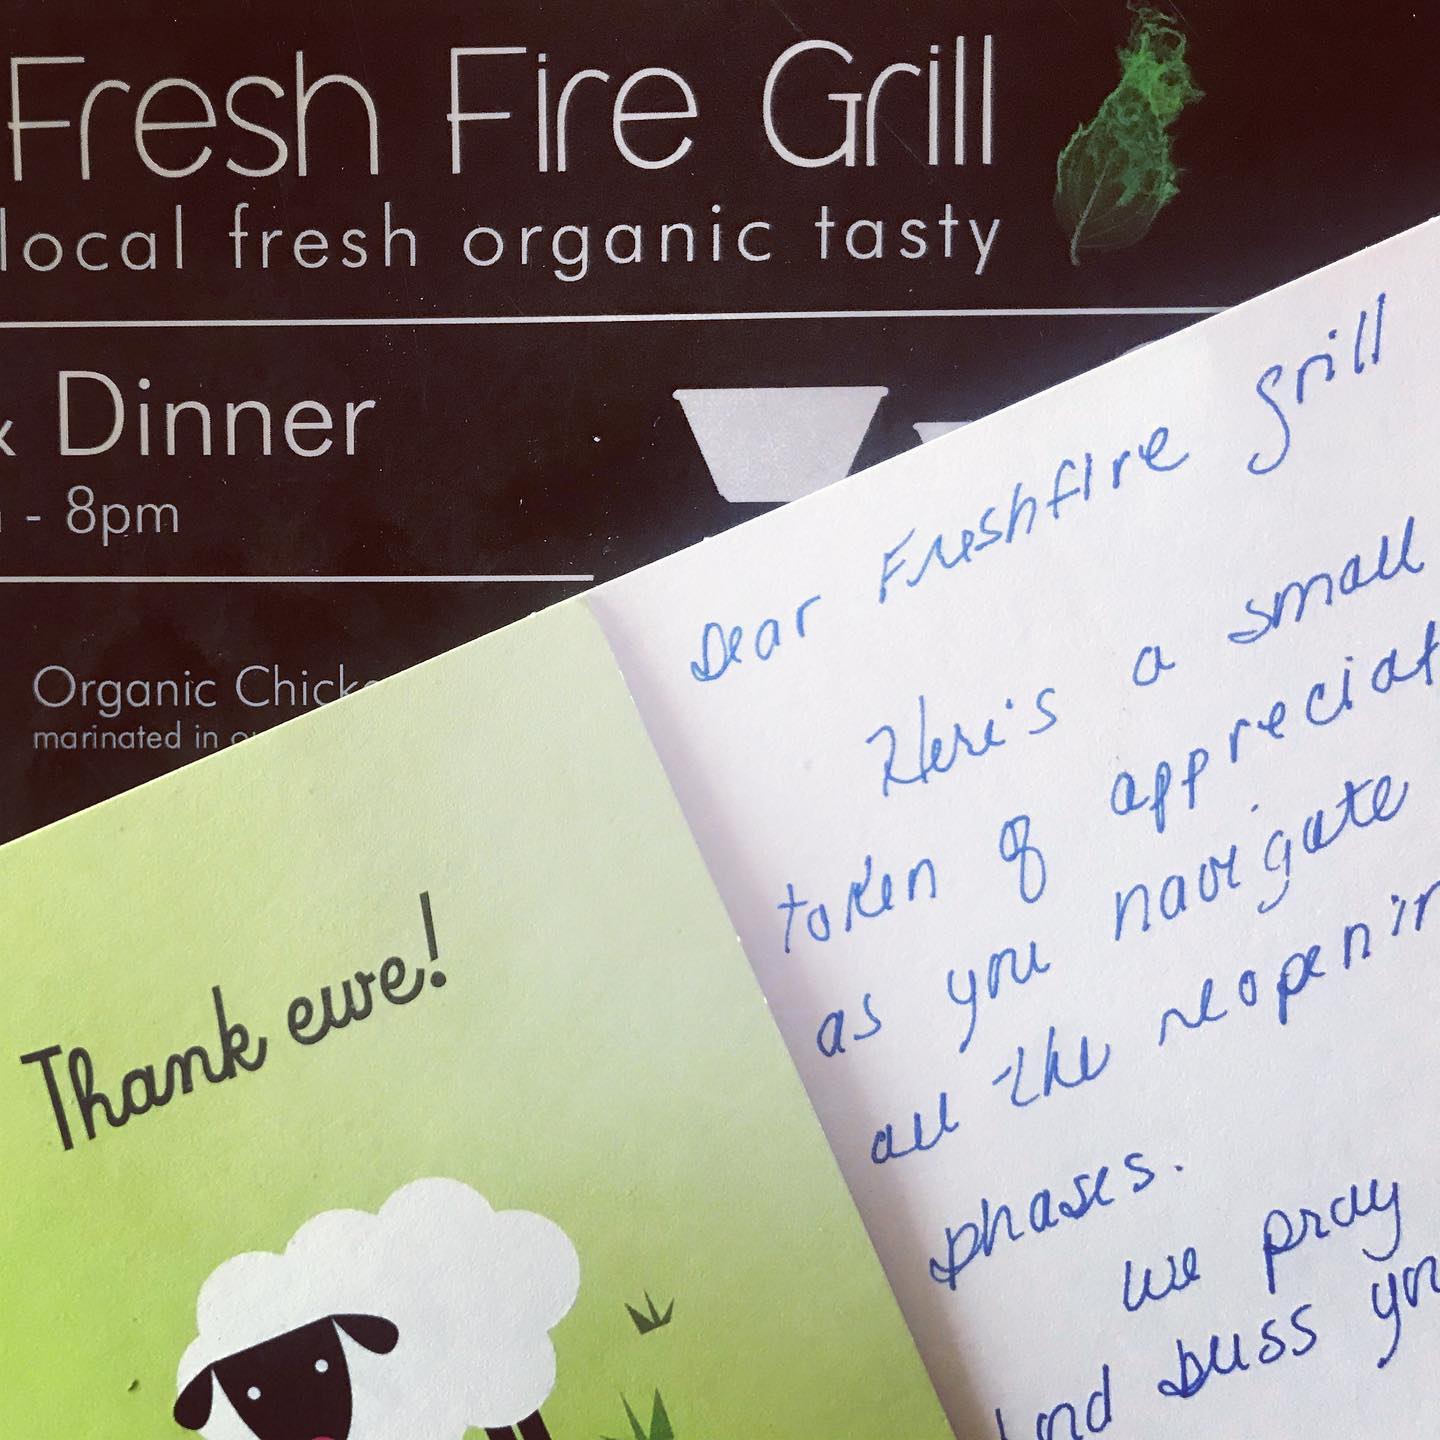 Fresh Fire Grill
local fresh organic tasty
& Dinner
- 8pm
Organic Chick
marinated in
Thank ewe!
Dear Freshfire Grill
Here's a small
token of appreciat
as you navigate
all the reopenin
phases.
we pray
and bless you